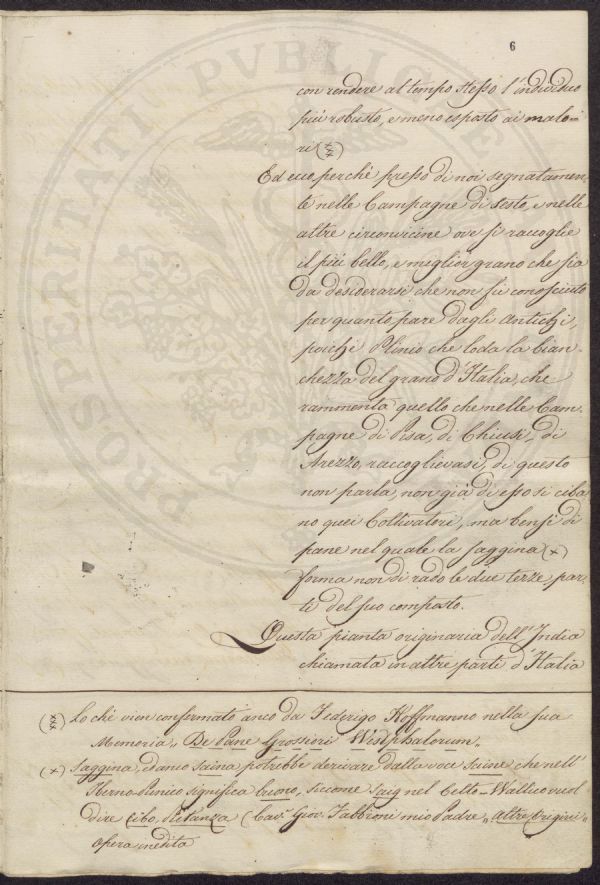 6
con rendere al tempo stesso l'individuo
più robusto, e meno esposto ai malo-
ri (xxx)
Ed ecco, perchè presso di noi segnatamen
te nelle Campagne di Sesto, e nelle
altre circonvicine ove si raccoglie
il più bello, e miglior grano che sia
da desiderarsi che non fù conosciuto
per quanto pare dagli Antichi,
poichè Plinio che loda la bian-
chezza del grano d'Italia, che
rammenta quello che nelle Cam-
pagne di Pisa, di Chiusi, di
Arezzo, raccoglievasi, di questo
non parla, non già di esso si ciba
no quei Coltivatori, ma bensì di
pane nel quale la saggina (x)
forma non di rado le due terze par-
ti del suo composto.
Questa pianta originaria dell'India
chiamata in altre parti d'Italia
(xxx) Lo chè vien confermato anco da Federigo Hoffmanno nella sua
Memoria „ De Pane Grossiori Westphalorum „
(x) Saggina, ed anco Saina potrebbe derivare dalla voce Suine che nell'
Iberno-Punico significa buono, siccome Saig nel Celto-Wallico vuol
dire Cibo, Pitanza (Cav.r Giov. Fabbroni mio Padre „ Altre Origini „
opera inedita
PROSPERITATI PVBLICAE